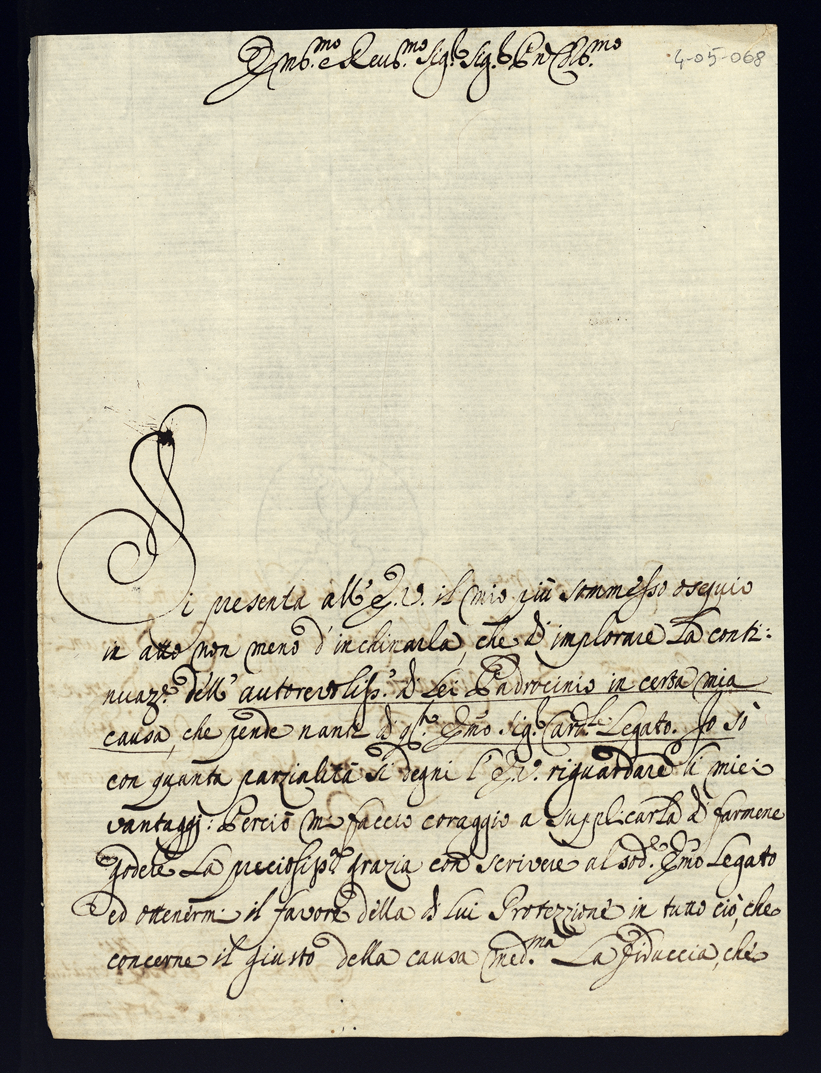 Em.mo e Rev.mo Sig.r Sig.r P.ron Col.mo
4-05-068
Si presenta all' E. V. il mio più sommesso ossequio
in atto non meno d'inchinarla, che di implorare la conti:
nuaz.e dell' autorevoliss.o di Lei Padrocinio in certa mia
causa, che pende nanti di q.to Emo Sig.r Card.le Legato. Io sò
con quanta parzialità si degni l' E. V. riguardare li miei
vantaggi: Perciò mi faccio coraggio a supplicarla di farmene
godere la preciosiss.a grazia con scrivere al sod.o Emo Legato
ed ottenermi il favore della di lui Protezzione in tutto ciò, che
concerne il giusto della causa med.ma La fiduccia, che